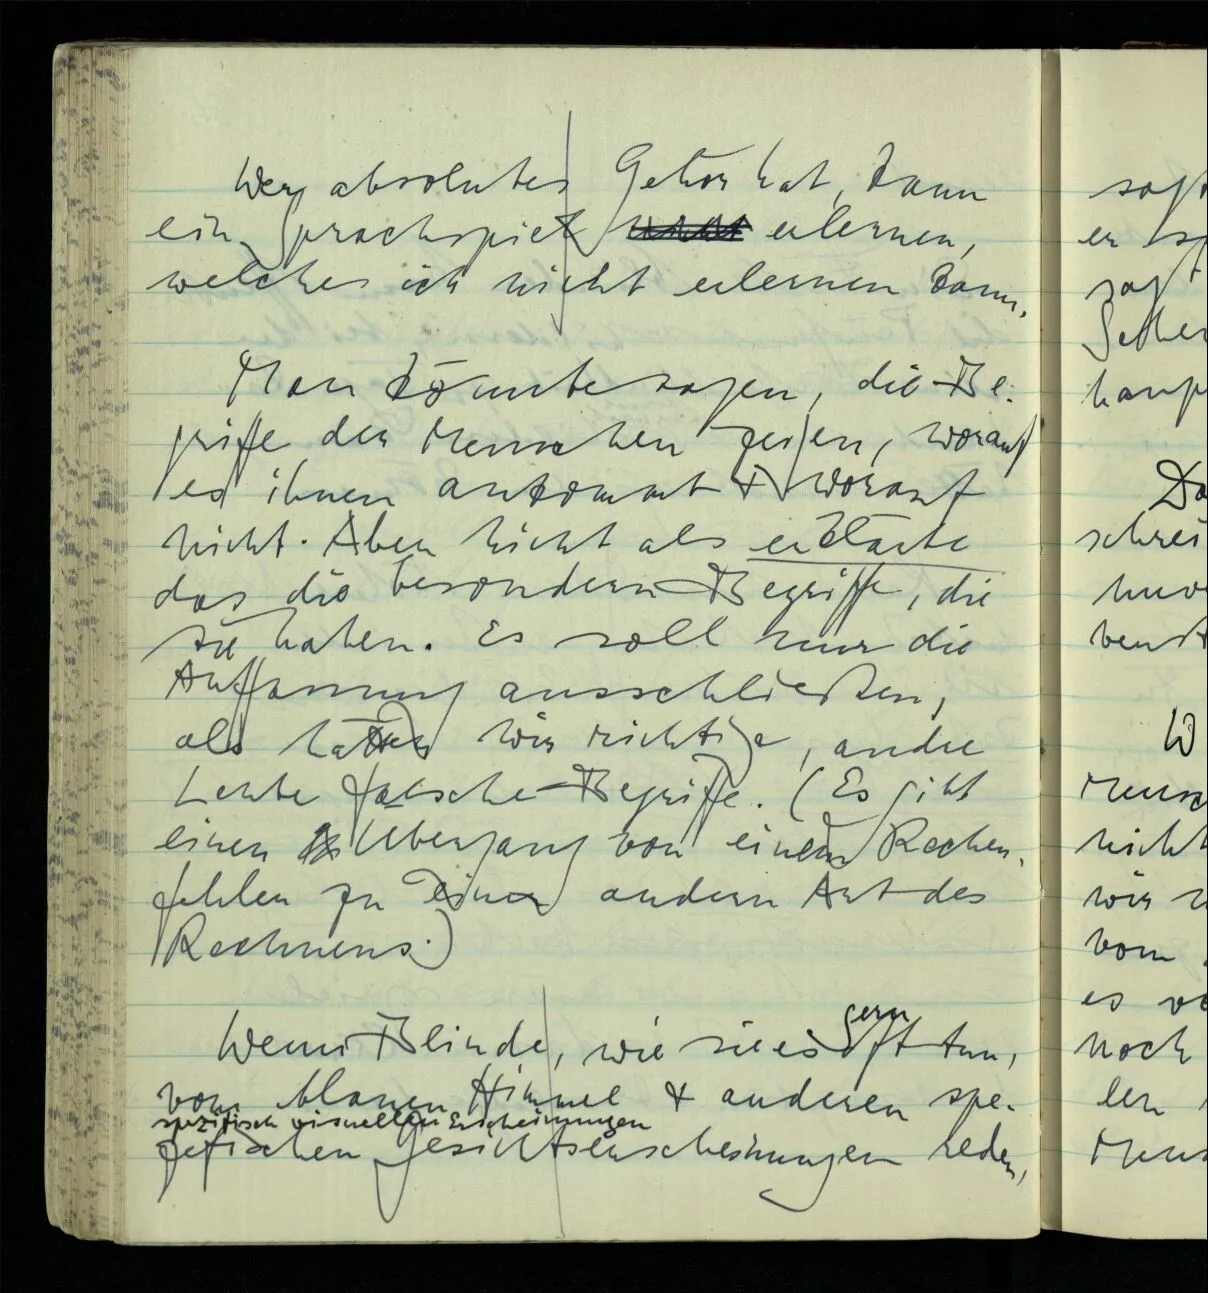 Wer absolutes Gehör hat, kann
ein Sprachspiel erlernen,
welches ich nicht erlernen kann.
Man könnte sagen, die Be-
griffe der Menschen zeigen, worauf
es ihnen ankommt & worauf
nicht. Aber nicht als erklärte
das die besondern Begriffe, die
sie haben. Es soll nur die
Auffassung ausschließen,
als hätten wir richtige, andre
Leute falsche Begriffe. (Es gibt
einen Übergang von einem Rechen-
fehler zu einer andern Art des
Rechnens.)
gern
Wenn Blinde, wie sie es oft tun,
vom blauen Himmel & anderen spe-
spezifisch visuellen Erscheinungen
zifischen Gesichtserscheinungen reden,
sagt
er
sagt
haup
Da
schrei
W
Mensc
nicht
wir
vom
es
noch
len